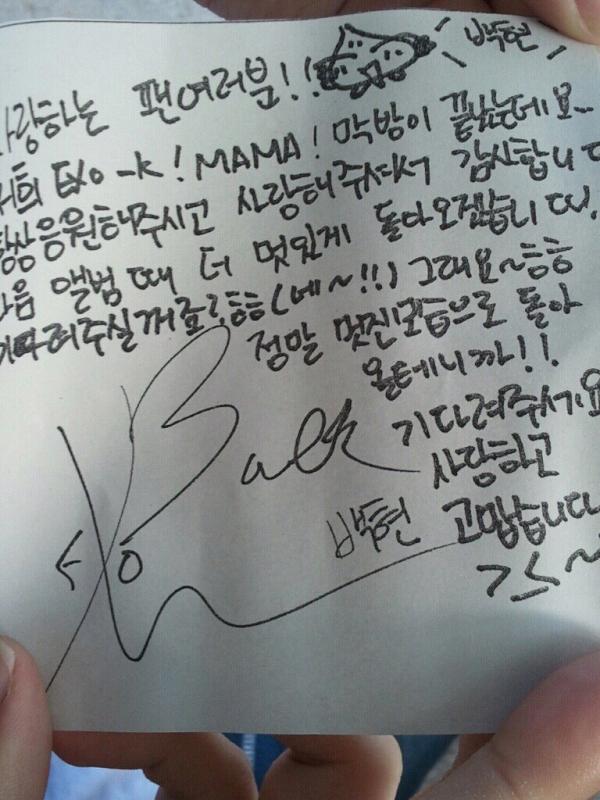 사랑하는 팬여러분!! 백현
저희 EXO-K! MAMA! 막방이 끝났는데요~
항상 응원해주시고 사랑해주셔서 감사합니다
다음 앨범때 더 멋있게 돌아오겠습니다.
기다려주실꺼죠? ㅎㅎ (네~!!) 그래요~ㅎㅎ
정말 멋진모습으로 돌아
올테니까!!
기다려주세요
사랑하고
백현 고맙습니다
EXO
Baek